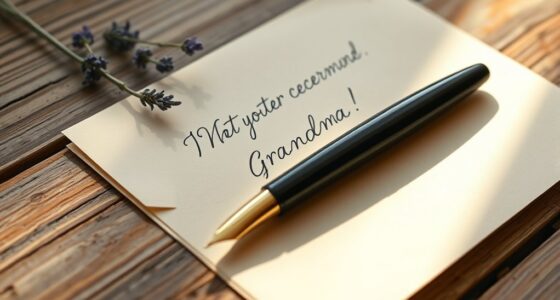 I Met yoıter cecermind.
Grandma!